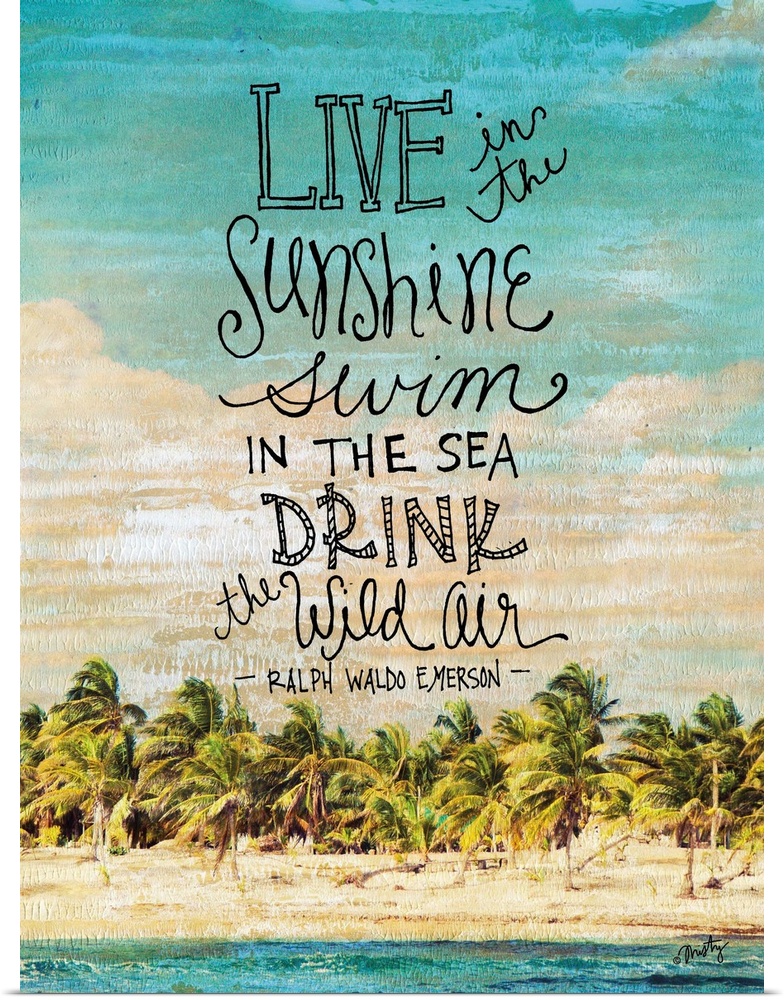 LIVE in the
Sunshine
swim
IN THE SEA
DRINK
the Wild Air
— RALPH WALDO EMERSON —
© Misty